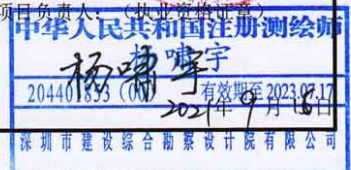 项目负责人：（执业资格证章）
中华人民共和国注册测绘师
杨啸宇
杨啸宇
204401833（00） 有效期至2023.07.17
2021年9月16日
深圳市建设综合勘察设计院有限公司